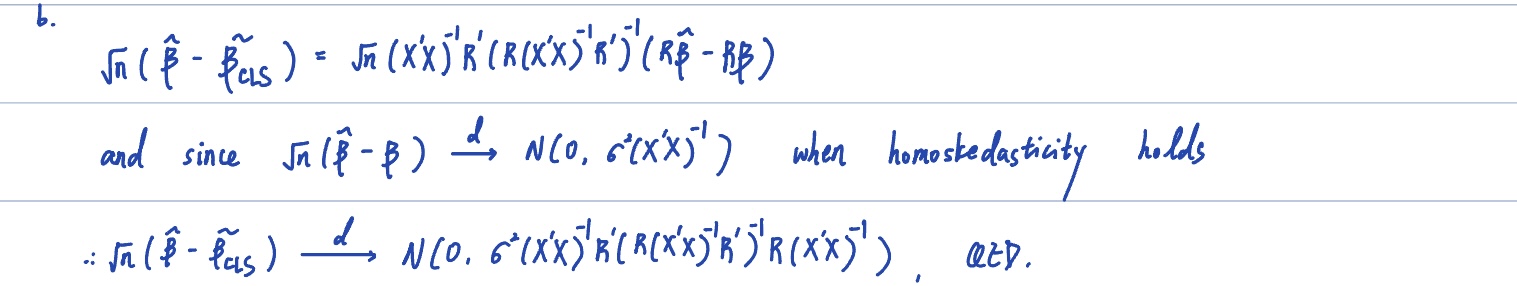 b.
√n (β̂ - β̃_CLS) = √n (X'X)⁻¹R'(R(X'X)⁻¹R')⁻¹(Rβ̂ - Rβ)
and since √n (β̂ - β) →ᵈ N(0, σ²(X'X)⁻¹) when homoskedasticity holds
∴ √n (β̂ - β̃_CLS) →ᵈ N(0, σ²(X'X)⁻¹R'(R(X'X)⁻¹R')⁻¹R(X'X)⁻¹), QED.